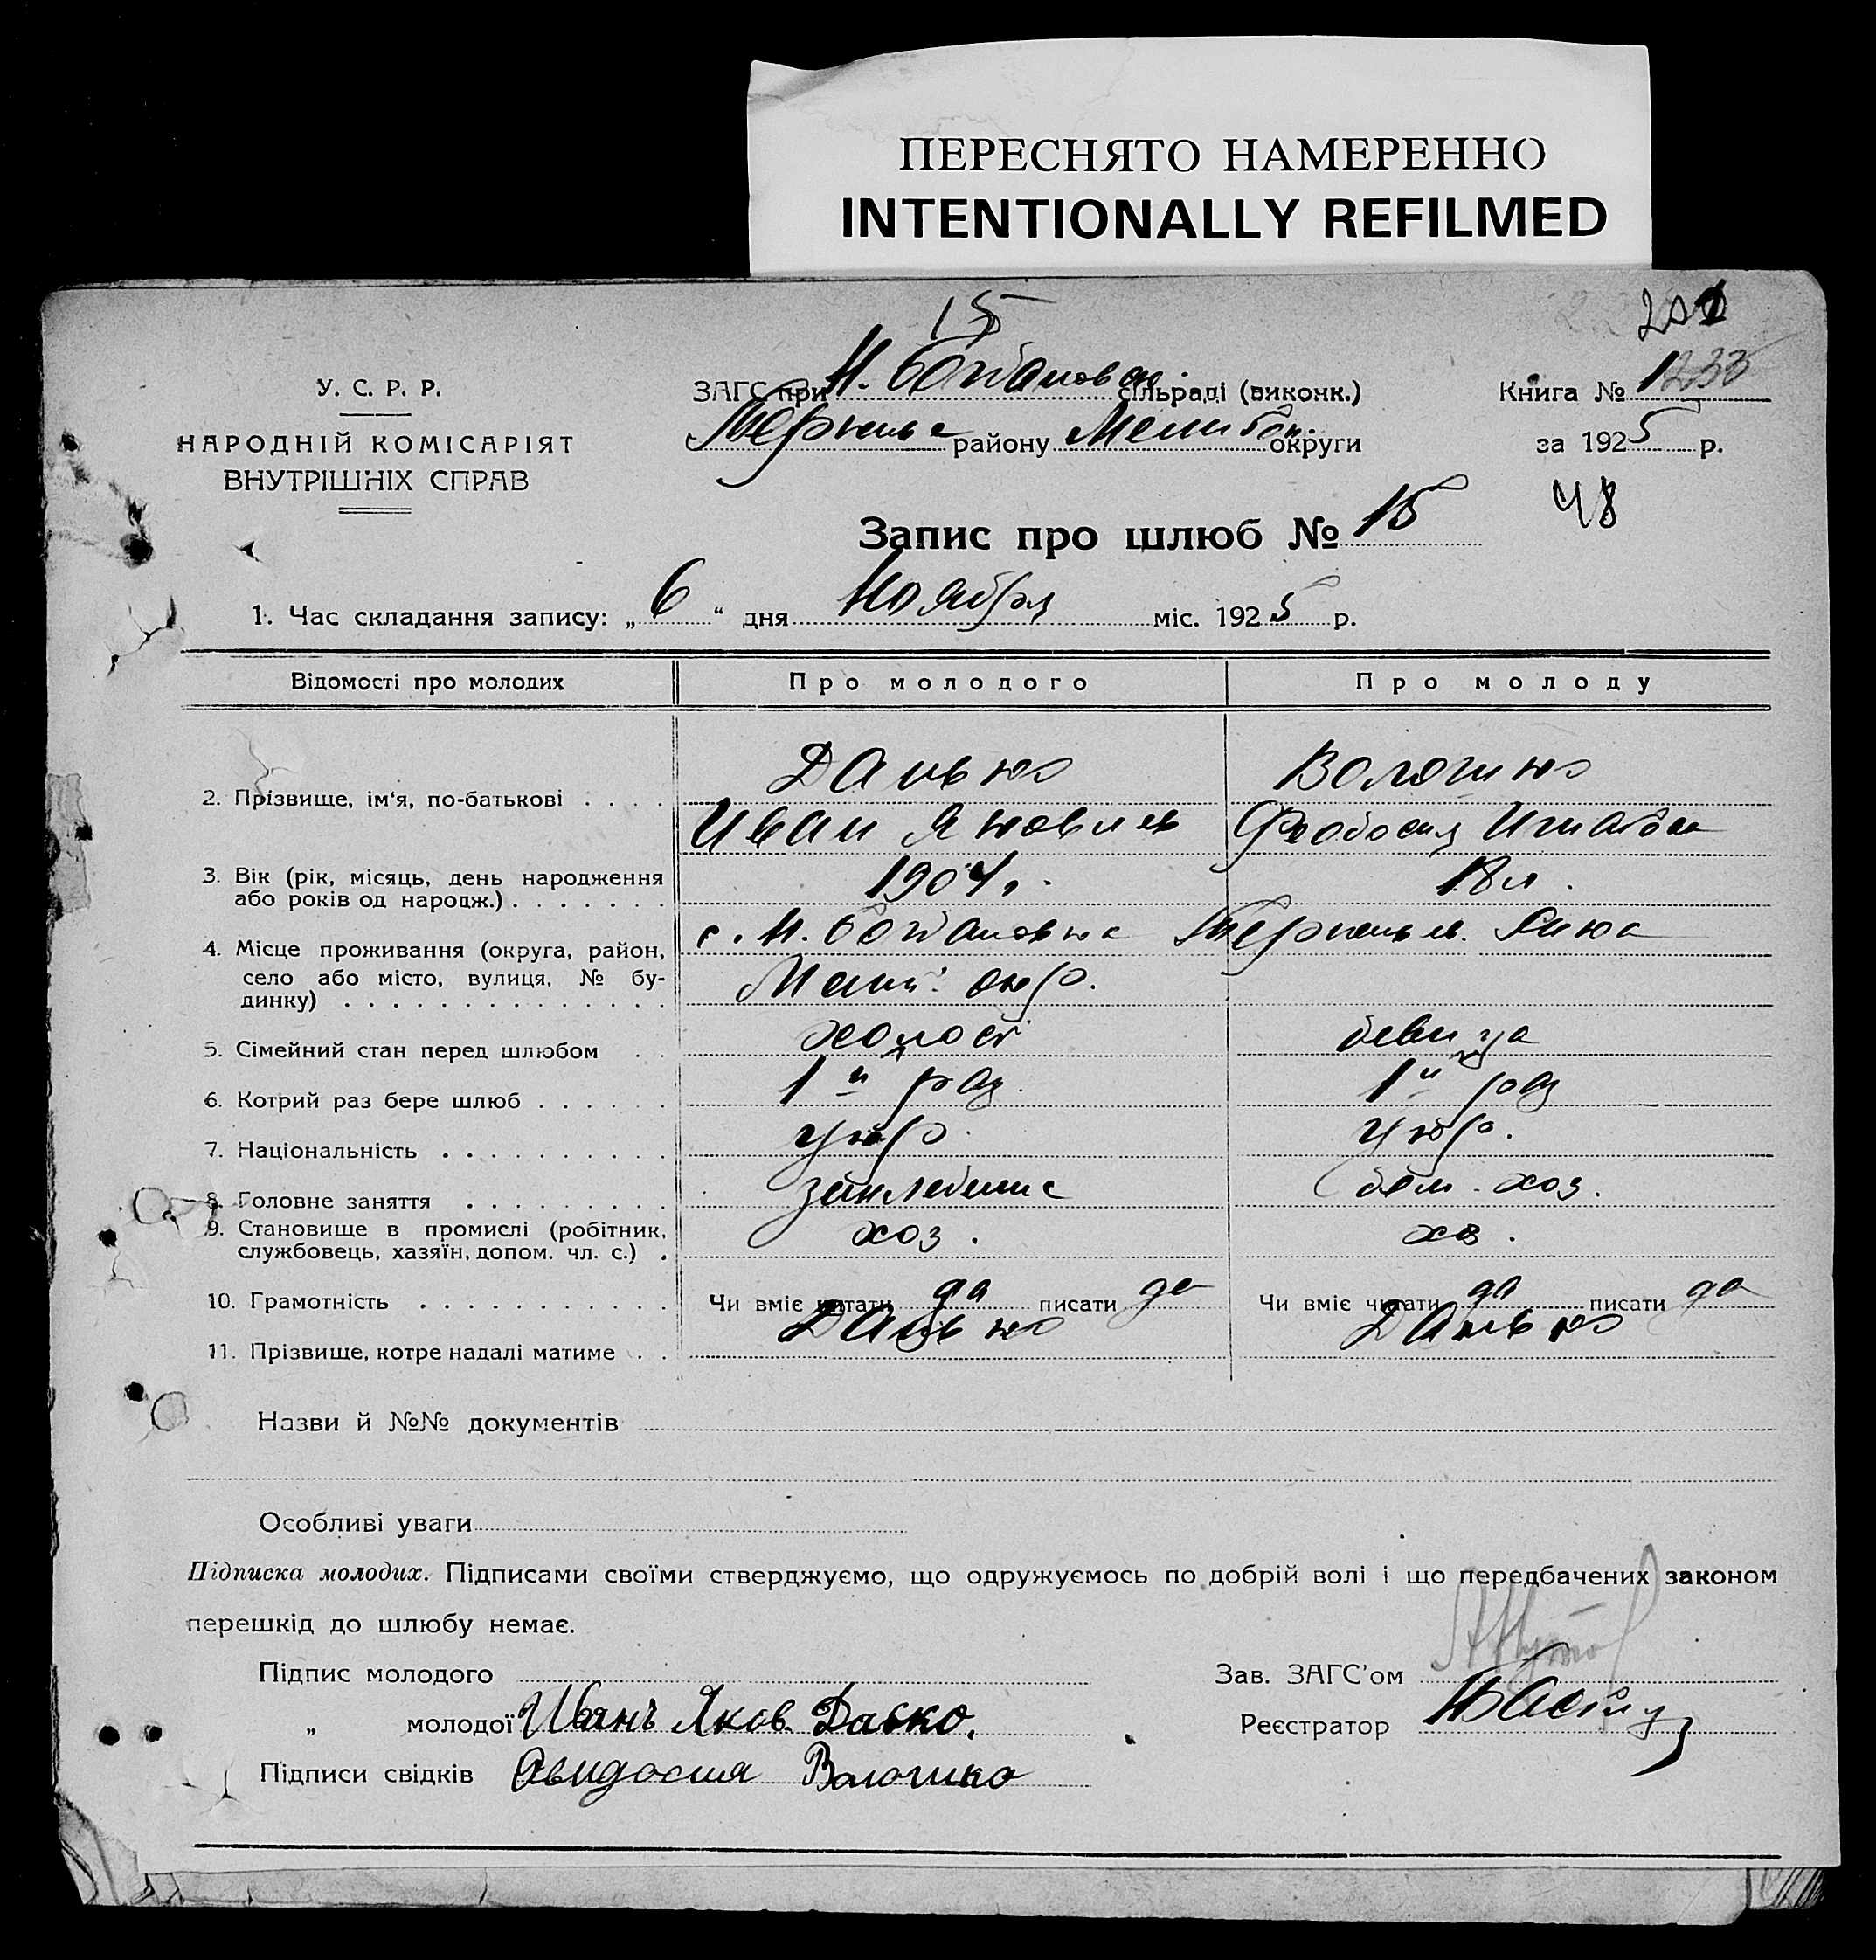 ПЕРЕСНЯТО НАМЕРЕННО
INTENTIONALLY REFILMED
15
У. С. Р. Р.
НАРОДНІЙ КОМІСАРІЯТ
ВНУТРІШНІХ СПРАВ
ЗАГС при Н. Богдановск. сільраді (виконк.)
района району Мелитоп. округи
Книга № 1
за 1925 р.
48
Запис про шлюб № 15
1. Час складання запису: „6“ дня Ноября міс. 1925 р.
Відомості про молодих Про молодого Про молоду
2. Прізвище, ім‘я, по-батькові . . . . Данько Волошко
Иван Яковлев Феодосия Игнатовна
3. Вік (рік, місяць, день народження
або років од народж.) . . . . . . . 1904 г. 18 л.
4. Місце проживання (округа, район,
село або місто, вулиця, № бу-
динку) . . . . . . . . . . . . . с. Н. Богдановка
Мелит. окр.
5. Сімейний стан перед шлюбом . . холост девица
6. Котрий раз бере шлюб . . . . . . 1й раз. 1й раз
7. Національність . . . . . . . . . . укр. укр.
8. Головне заняття . . . . . . . . . земледелие дом. хоз.
9. Становище в промислі (робітник,
службовець, хазяїн, допом. чл. с.) . хоз. хоз.
10. Грамотність . . . . . . . . . . . Чи вміє читати да писати да Чи вміє читати да писати да
11. Прізвище, котре надалі матиме . . Данько Данько
Назви й №№ документів
Особливі уваги
Підписка молодих. Підписами своїми стверджуємо, що одружуємось по добрій волі і що передбачених законом
перешкід до шлюбу немає.
Підпис молодого
Зав. ЗАГС'ом
„ молодої Иванъ Яков. Данко.
Реєстратор
Підписи свідків Волошко